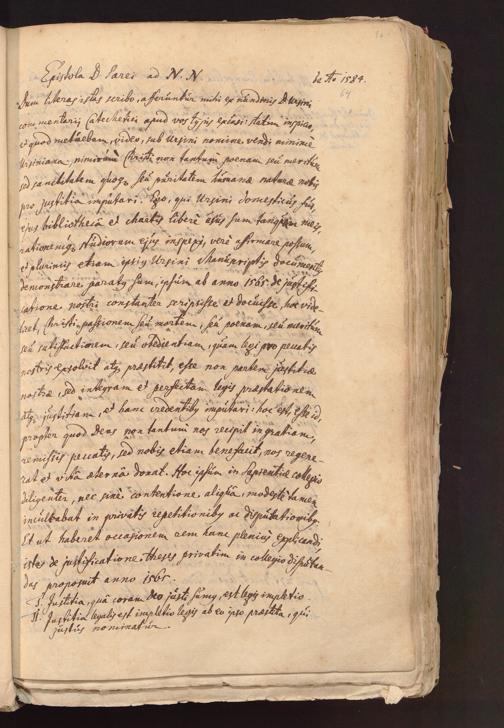 Epistola D. Parei ad N. N. de Ao 1584.
64
Dum literas istas scribo, afferuntur mihi ex nundinis D. Ursini
commentarii Catechetici apud vos typis excusi: statim inspicio,
et quod metuebam, video, sub Ursini nomine vendi minimè
Ursiniana, nimirum Christi non tantum poenam seu meritum
sed sanctitatem quoqz seu puritatem humanae naturae nobis
pro justitia imputari. Ego, qui Ursini domesticus fui,
ejus bibliothecâ et chartis liberè usus sum tanquam meis,
rationemqz studiorum ejus inspexi, verè affirmare possum,
et plurimis etiam ipsius Ursini Manuscriptis documentis
demonstrare paratus sum, ipsum ab anno 1565 de justifi-
catione nostri constanter scripsisse et docuisse, hoc vide-
licet, Christi passionem seu mortem, seu poenam, seu meritum
seu satisfactionem, seu obedientiam, quam legi pro peccatis
nostris exsolvit atqz praestitit, esse non partem justitiae
nostrae, sed integram et perfectam legis praestationem
atqz justitiam, et hanc credentibus imputari: hoc est, esse id,
propter quod Deus non tantum nos recipit in gratiam,
remissis peccatis, sed nobis etiam benefacit, nos regene-
rat et vitâ aeternâ donat. Hoc ipsum in Sapientiae collegio
diligenter, nec sine contentione aliquâ, modestè tamen
inculcabat in privatis repetitionibus ac disputationibus.
Et ut haberet occasionem rem hanc pleniùs explicandi,
istas de justificatione Theses privatim in collegio disputan-
das proposuit anno 1565.
I. Justitia, quâ coram Deo justi sumus, est legis impletio.
II. Justitia legalis est impletio legis ab eo ipso praestita, qui
justus nominatur.